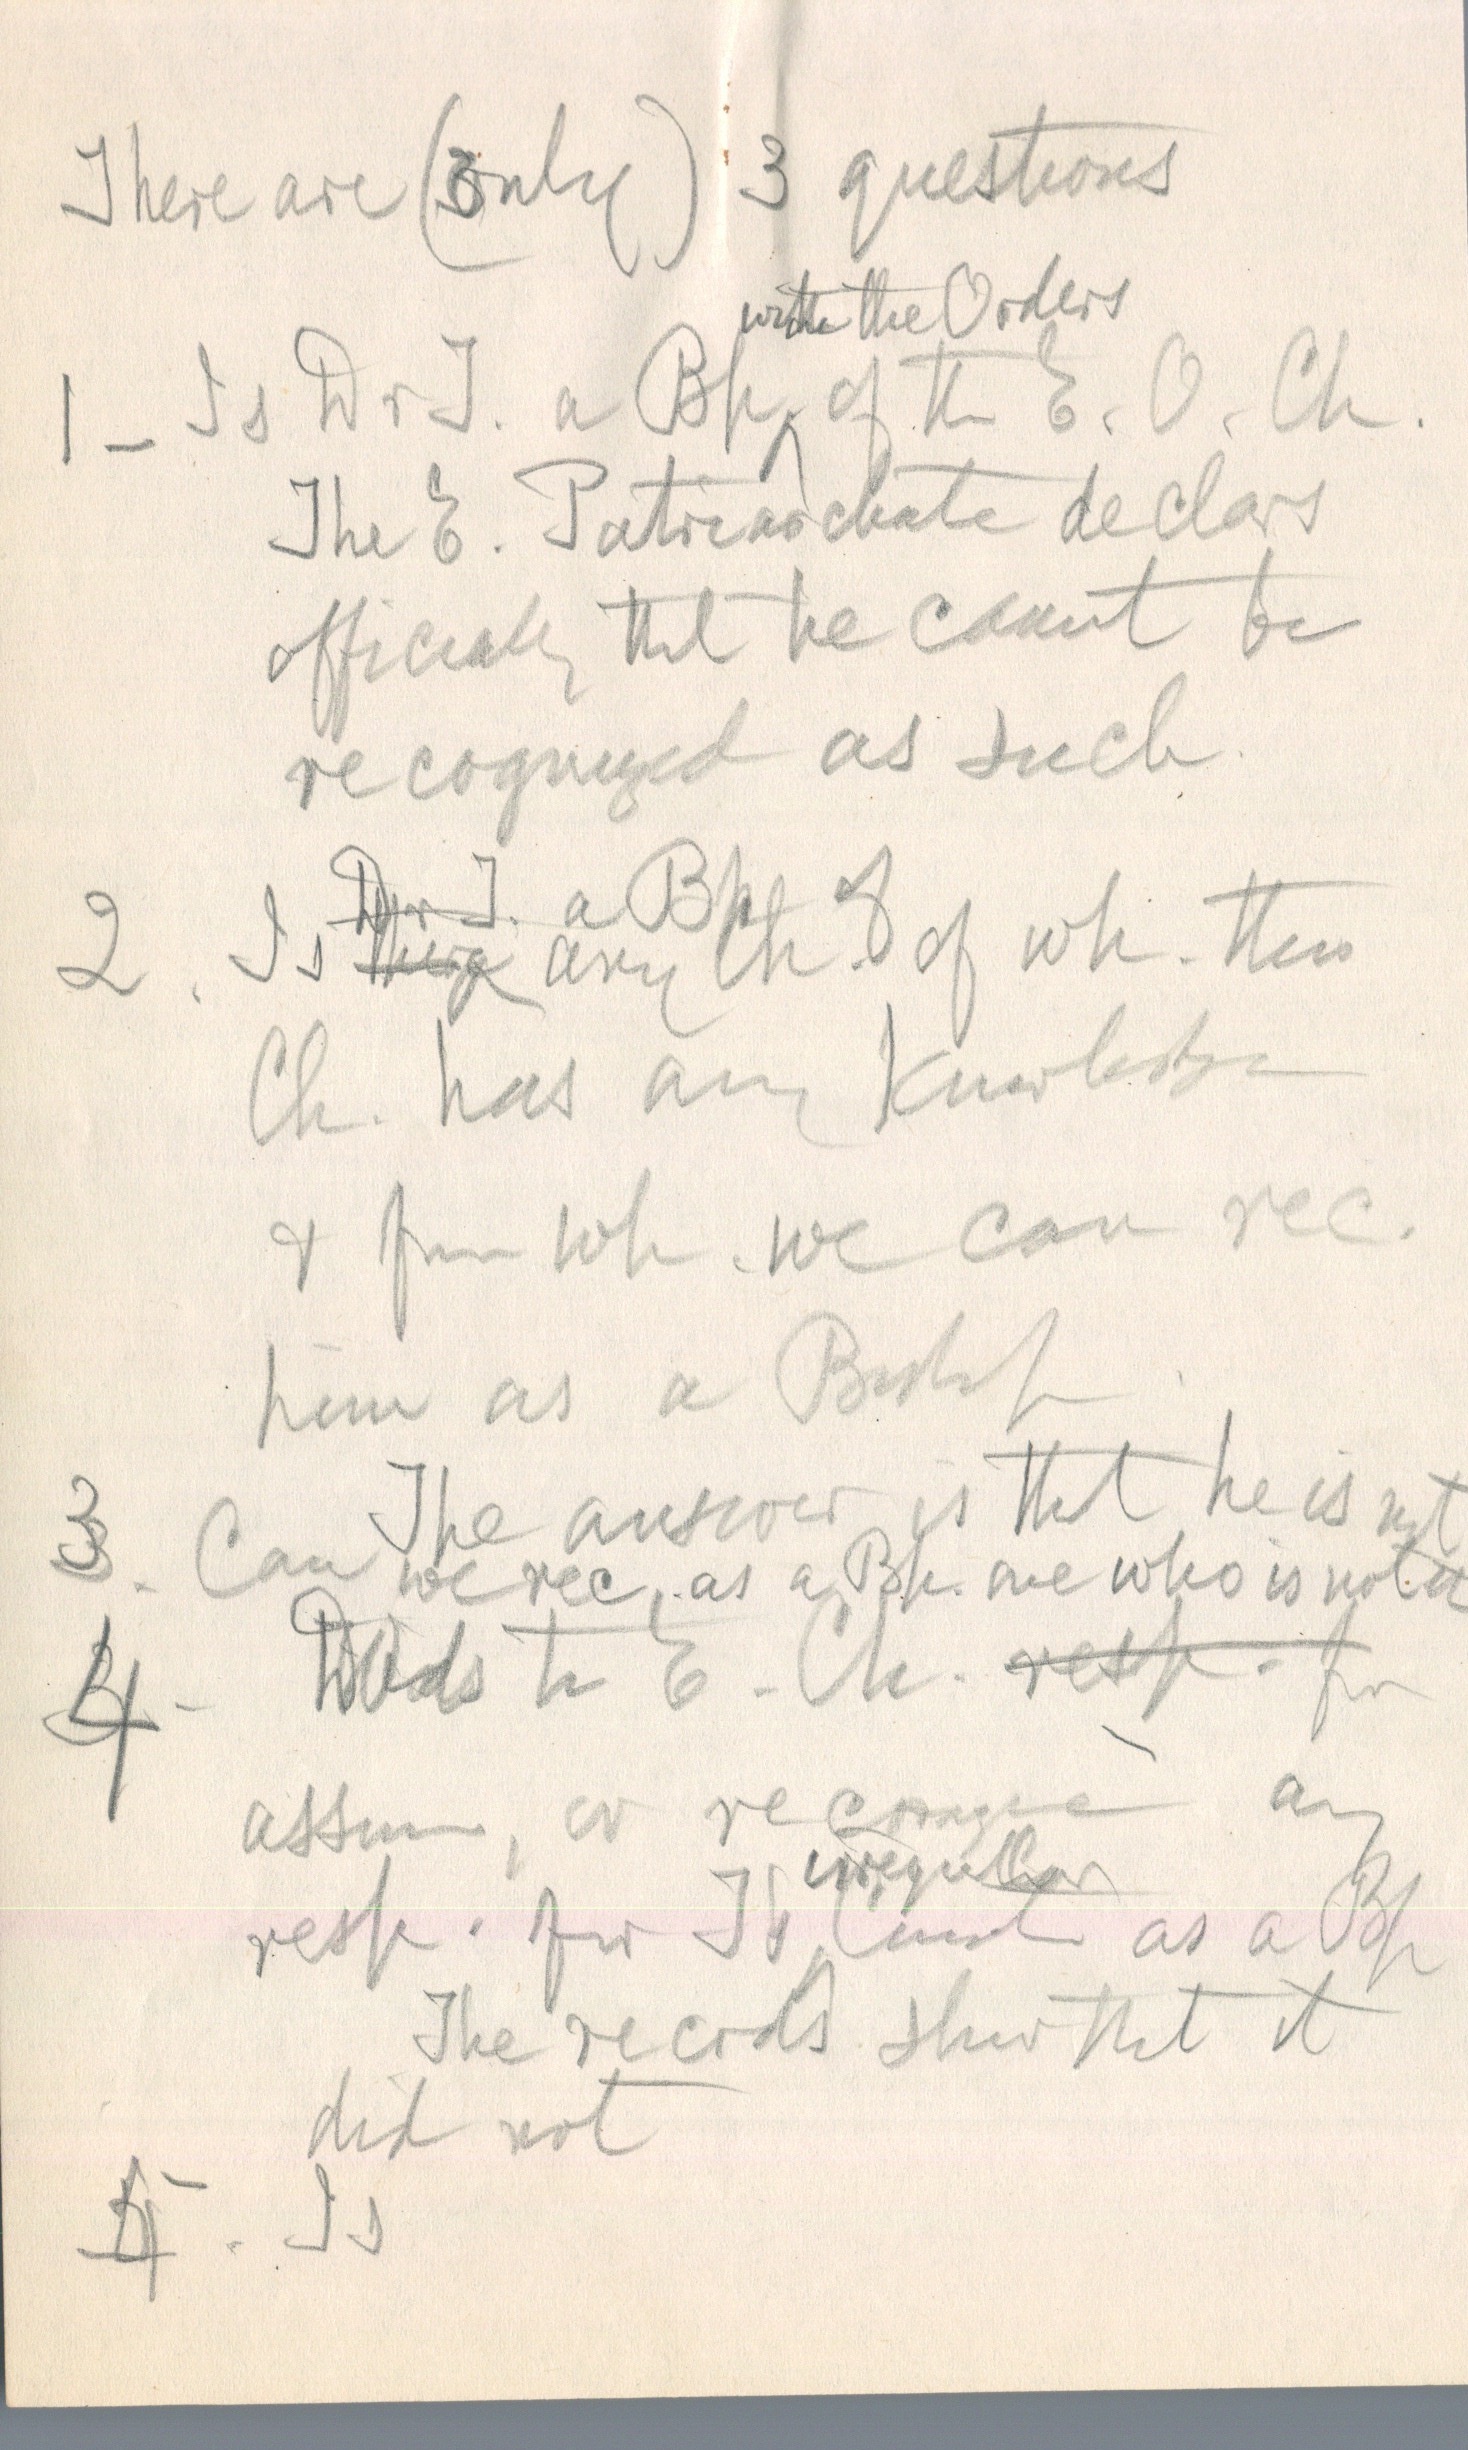 There are (only) 3 questions
with the Orders
1 - Is Dr T. a Bp of the E. O. Ch.
The E. Patriarchate declars
officially that he cannot be
recognized as such.
Dr T. a Bp of
2. Is any Ch. of wh. this
Ch. has any Knowledge
& from wh. we can rec.
him as a Bishop.
The answer is that he is not
3. Can we rec. as a Bp. one who is not a
4 - Did the E. Ch. resp. for
assume, or recognize any
irregular
resp. for T's as a Bp
The records show that it
did not
5. Is